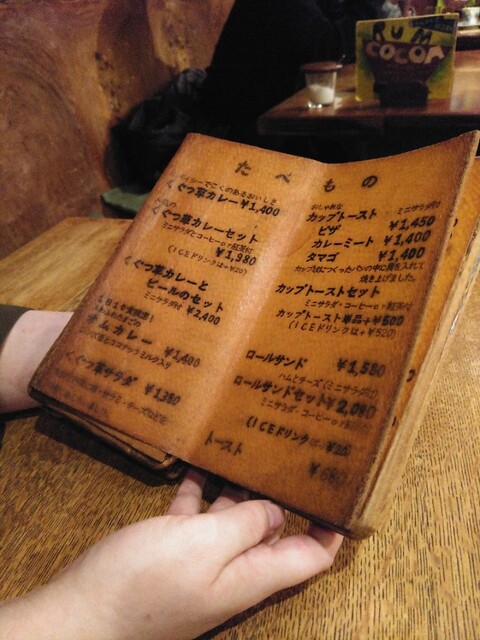 RUM
COCOA
たべもの
くぐつ草カレー¥1,400
くぐつ草カレーセット
ミニサラダとコーヒーor紅茶付
¥1,980
(ICEドリンクは+¥20)
くぐつ草カレーと
ビールのセット
ミニサラダ付 ¥2,400
オムカレー
¥1,400
くぐつ草サラダ ¥1,350
おしゃれな
カップトースト
ミニサラダ付
ピザ ¥1,450
カレーミート ¥1,400
タマゴ ¥1,400
カップ
につくったパンの中に具を入れて
焼き上げました。
カップトーストセット
ミニサラダ・コーヒーor紅茶付
カップトースト単品+¥500
(ICEドリンクは+¥520)
ロールサンド ¥1,580
ハムとチーズ(ミニサラダ付)
ロールサンドセット¥2,080
ミニサラダ・コーヒーor
(ICEドリンクは+¥20)
トースト